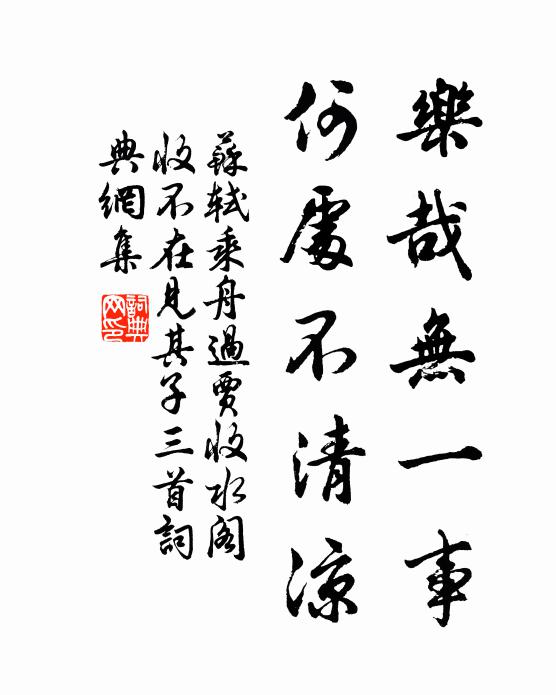 樂哉無一事
何處不清涼
蘇軾乘舟過賈收水閣
收不在見其子三首詞
典網集
詞典
网印